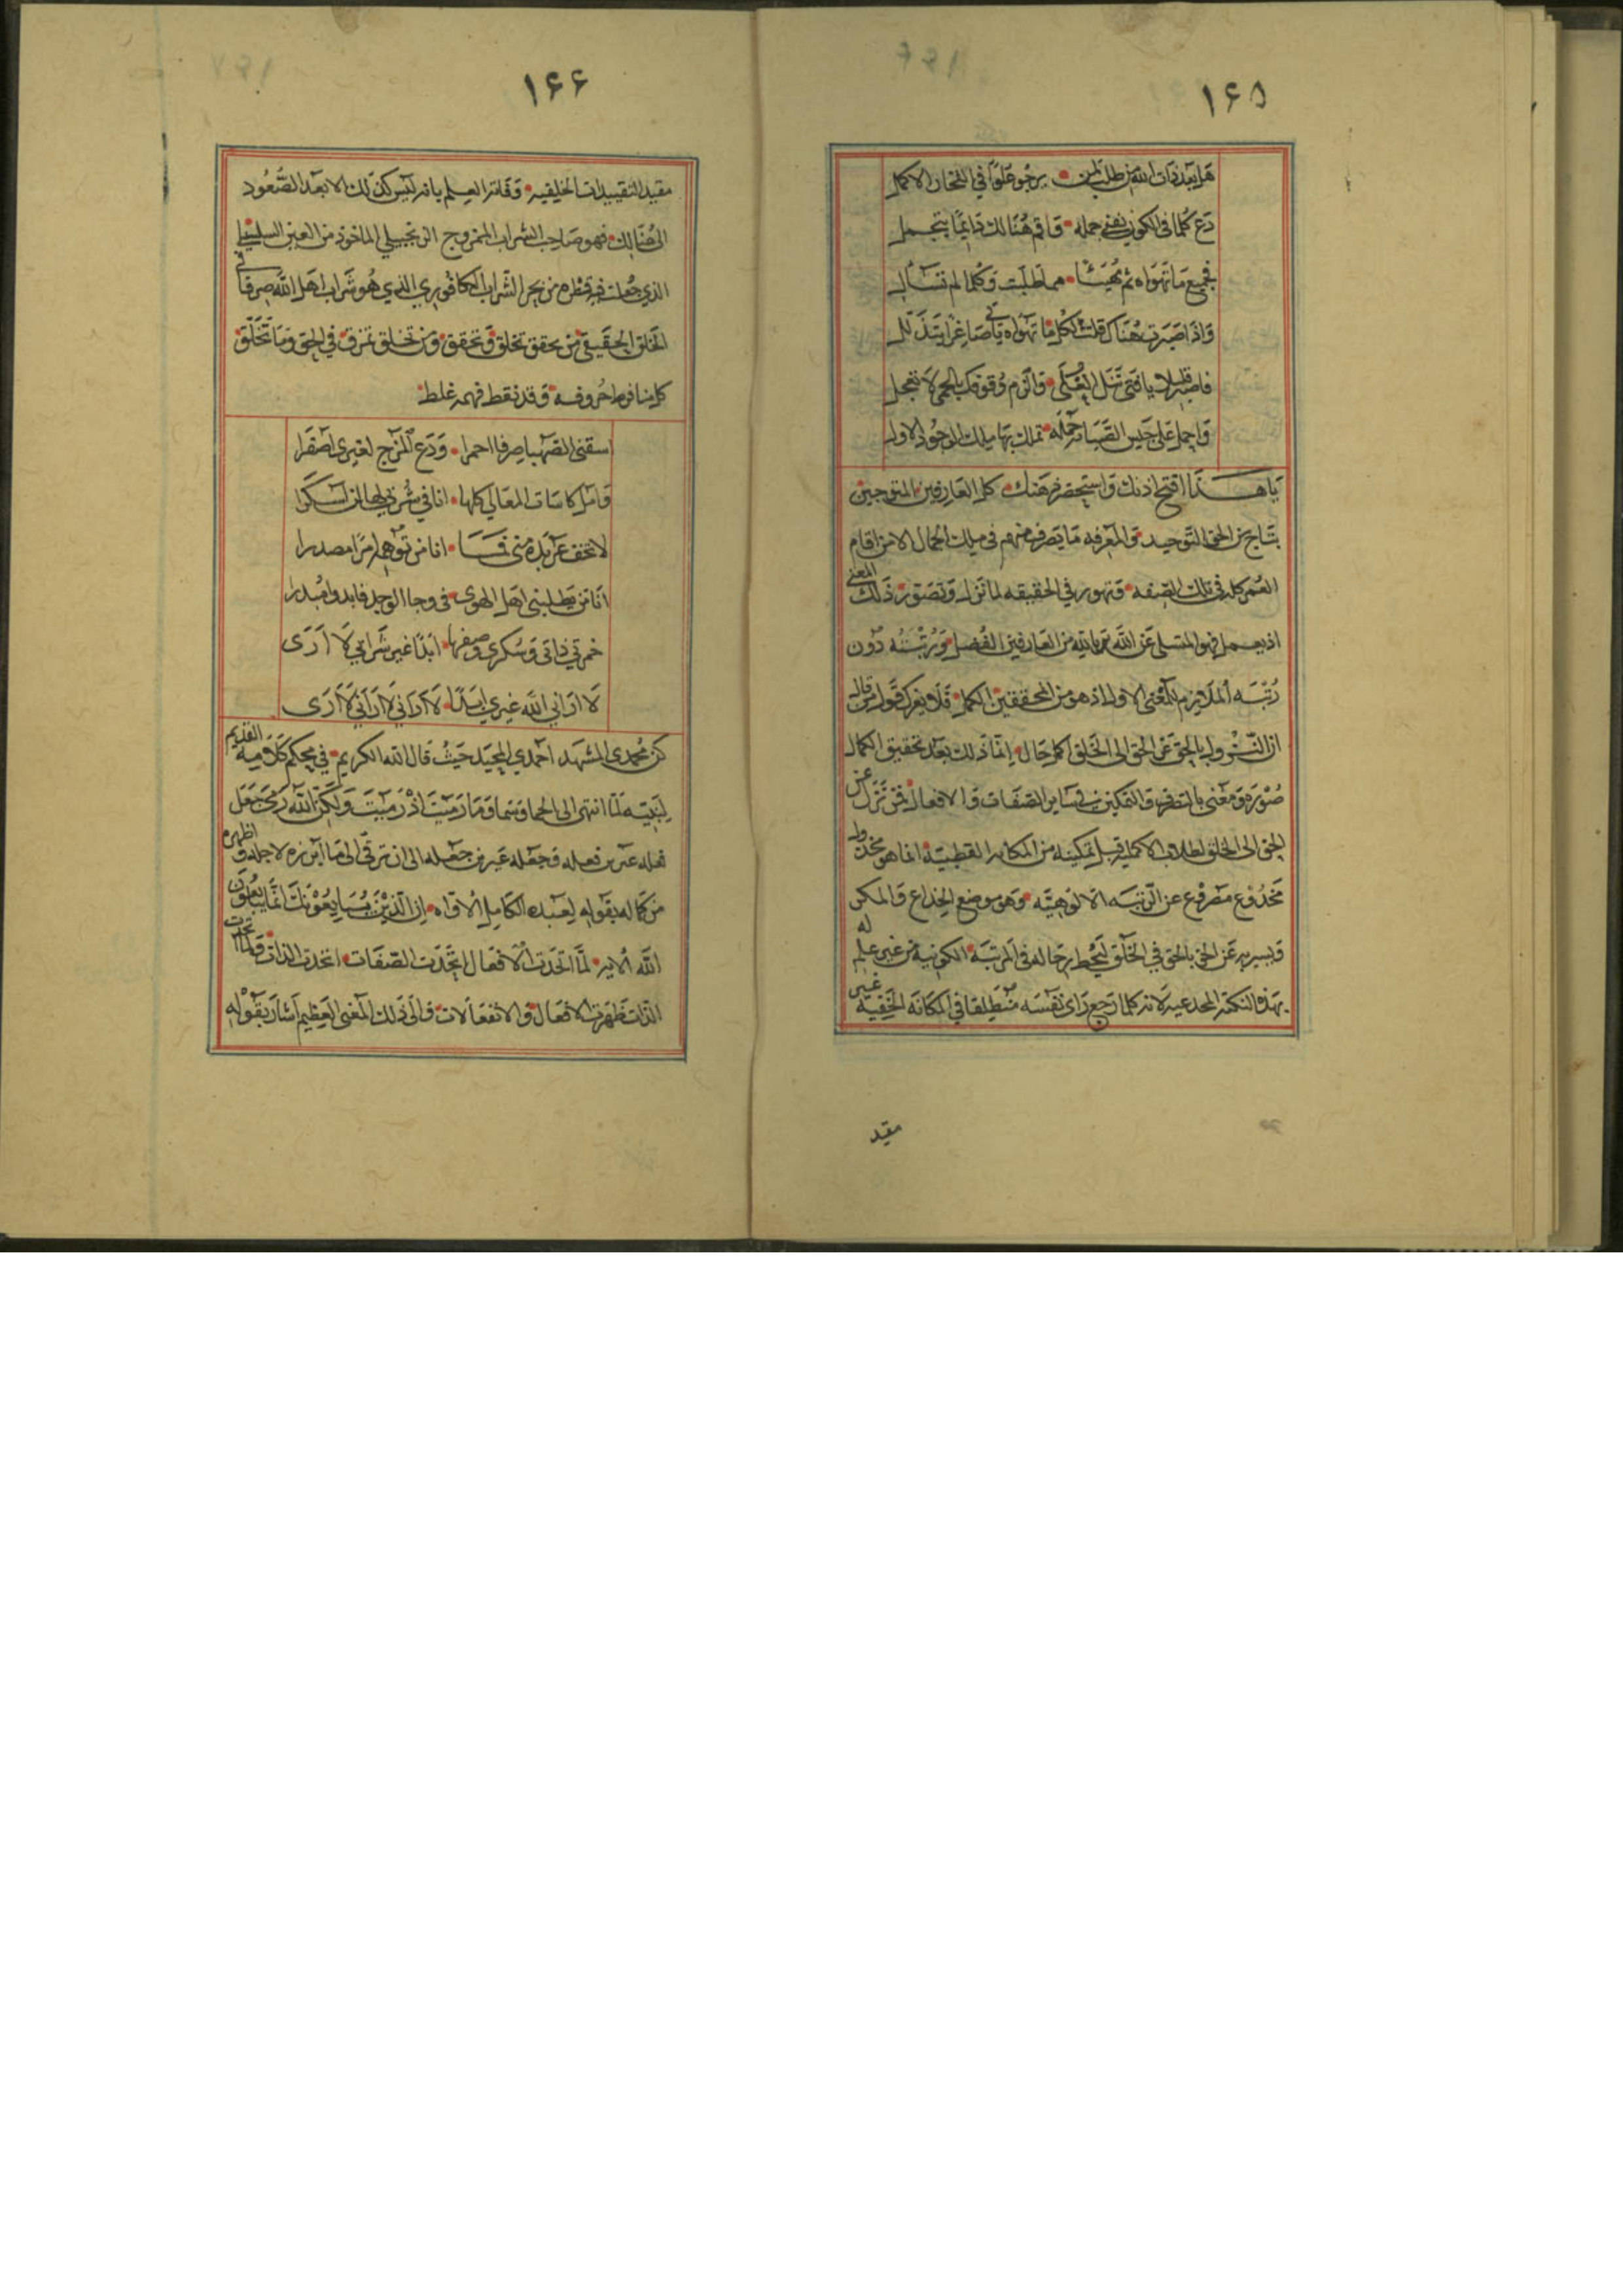 ١٦٥
هل بعد ذات الله من طلب لمن • يرجو علوا في الفخار الاكمل
دع كلما في الكون يفنى جمله • واقم هنالك دائما يتجمل
فجميع ما تهواه ثم مهيئا • مما طلبت وكلما لم تسأل
واذا صبرت هناك قلت لكل ما تهواه ياتي صاغرا يتذلل
فاصبر قليلا يا فتى تنل العلى • والزم وقوفك بالحمى لا تعجل
واحمل على جيس الصبابة حملة • تملك بها ملك الوجود الاول
يا هذا افتح اذنك واستحضر ذهنك • كل العارفين المتوجين
بتاج من الحق التوحيد • والمعرفه ما يتصرف منهم في ملك الجمال الا من اقام
العمر كله في تلك الصفه • وتهور في الحقيقه لما نزل وتصور ذلك المعنى
اذ يعمل فهو المتسلي عن الله تعالى بالله من العارفين الفضل ورتبته دون
رتبه الملازم للمعنى الاول اذ هو من المحققين الكمل • فلا يغرك قول من قال
ان النزول بالحق عن الحق الى الخلق اكمل حال • انما ذلك بعد تحقيق الكمال
صورة ومعنى بالتصرف والتمكين في ساير الصفات والافعال فمن تنزل عن
الحق الى الخلق لطلاب الاكمليه قبل تمكينه من المكانه القطبية • انما هو مخذول
مخدوع مصرفوع عن الرتبه الالوهية • وهو موضع الخداع والمكر
ويسير به عن الحق بالحق في الخلق ليحط رحاله في المرتبة الكونية من غير علم له
بهذه النكتة المخدعيه لانه كلما رجع راى نفسه منطلقا في المكانة الخفية غير
مقيد
١٦٦
مقيد التقييدات الخليقيه • وفاته العلم بانه ليس كذلك الا بعد الصعود
الى هنالك • فهو صاحب الشراب الممزوج الزنجبيلي الماخوذ من العين السلسبيل
الذي جعلت فيه قطره من بحر الشراب الكافوري الذي هو شراب اهل الله صرفا في
الخلق الحقيقي من تحقق تخلق وتحقق • ومن تخلق تمزق في الحق وما تخلق
كلامنا فوط احروفه • وقد نقط فهمه غلط
اسقني الصهبا صرفا احمرا • ودع المزج لغيري اصفرا
واملا كاسات المعالي كلها • انا في شربي لها لن اسكرا
لا تخف عربدة مني فسا • انا من توهل مرا مصدرا
انا من يطلبني اهل الهوى • في دجا الوجد فابدوا مبدرا
خمرتي ذاتي وسكري وصفها • ابدا غير شرابي لا ارى
لا اراني الله غيري ابدا • لا اراني لا اراني لا ارى
كن محمدي المشهد احمدي المجيد حيث قال الله الكريم • في محكم كلامه القديم
لنبيه لما انتهى الى الحما وسما وما رميت اذ رميت ولكن الله رمى جعل
فعله عين فعله وجعله عين جعله الى ان ترقى الى ما ابرزه لاجله واظهره
من كماله بقوله لعبده الكامل الاواه • ان الذين يبايعونك انما يبايعون
الله الايه • لما اتحدت الافعال اتحدت الصفات • اتحدت الذات فلما اتحدت
الذات ظهرت الافعال والانفعالات • والى ذلك المعنى العظيم اشار بقوله